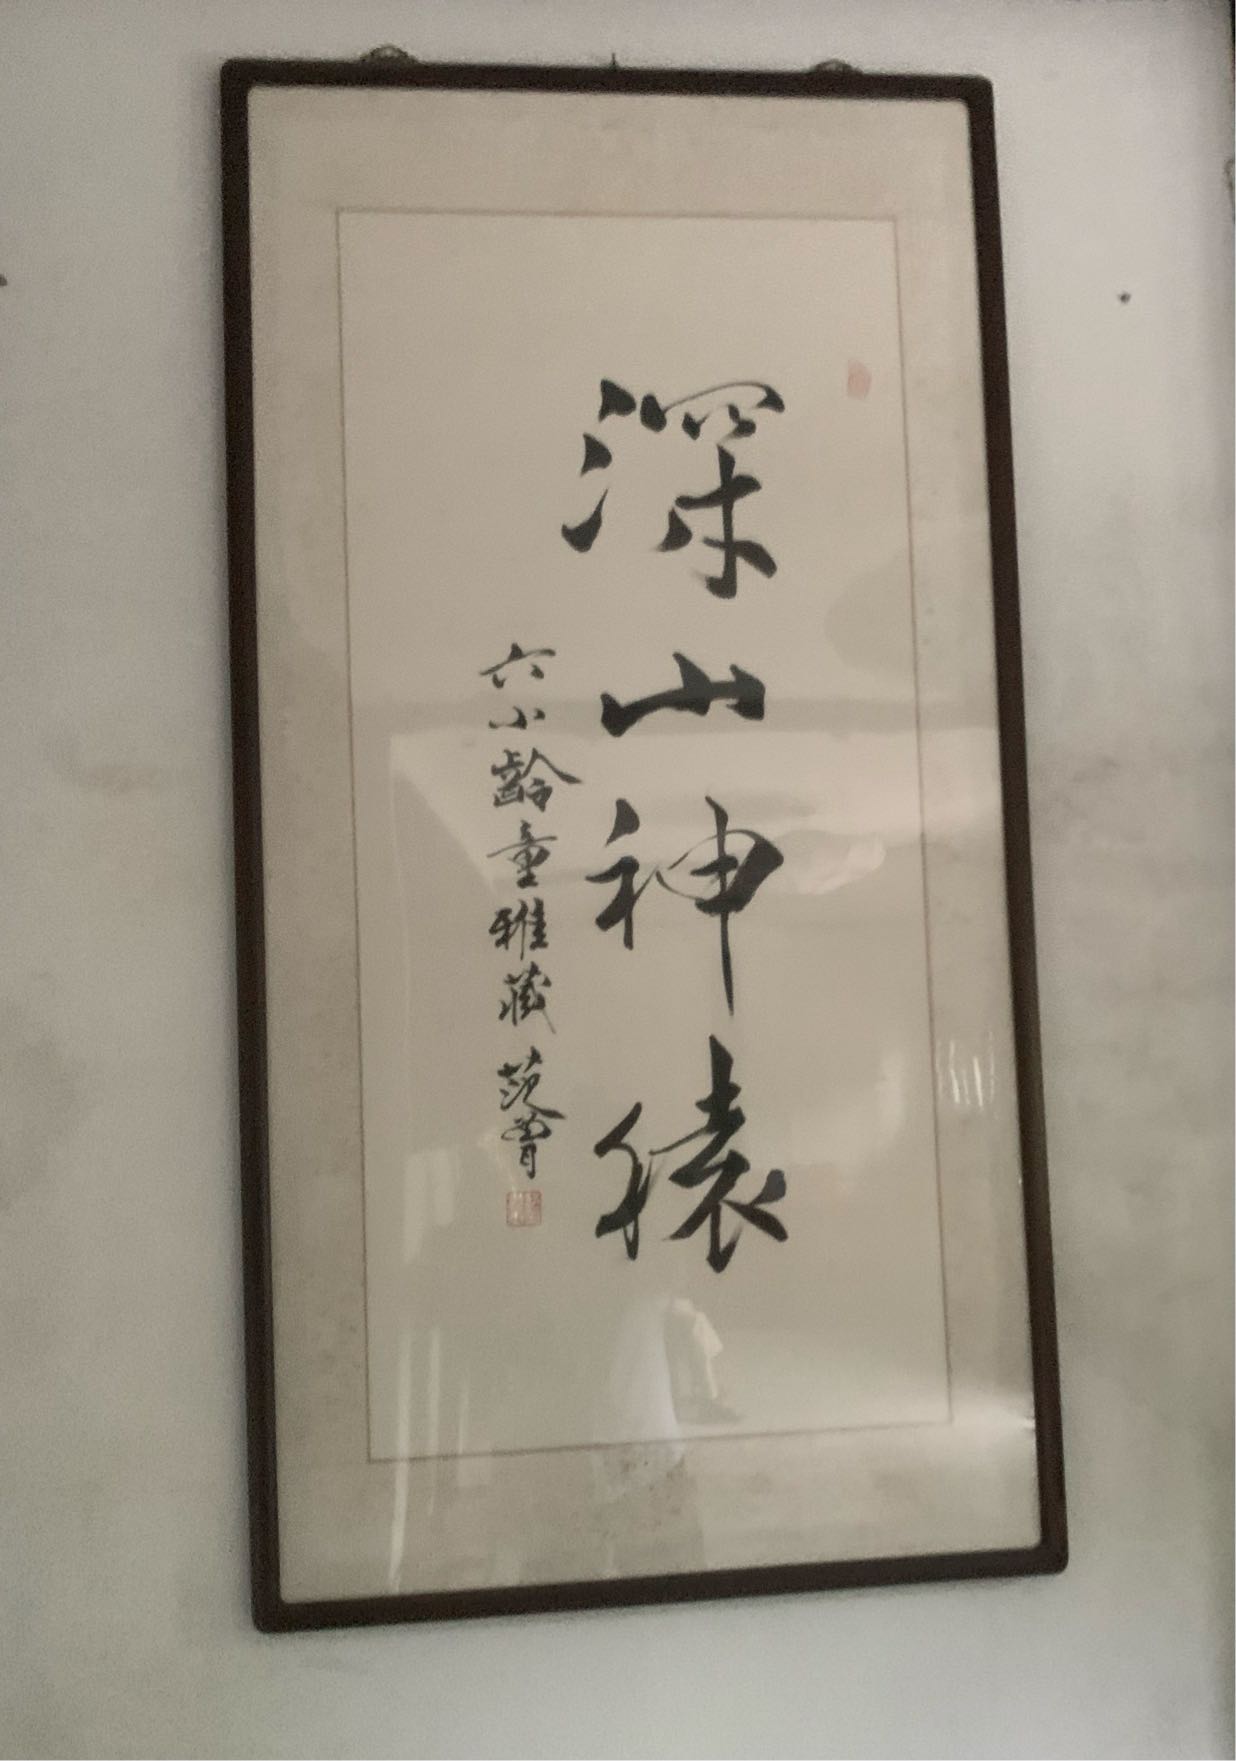 深山神猿
六小齡童雅藏 范曾